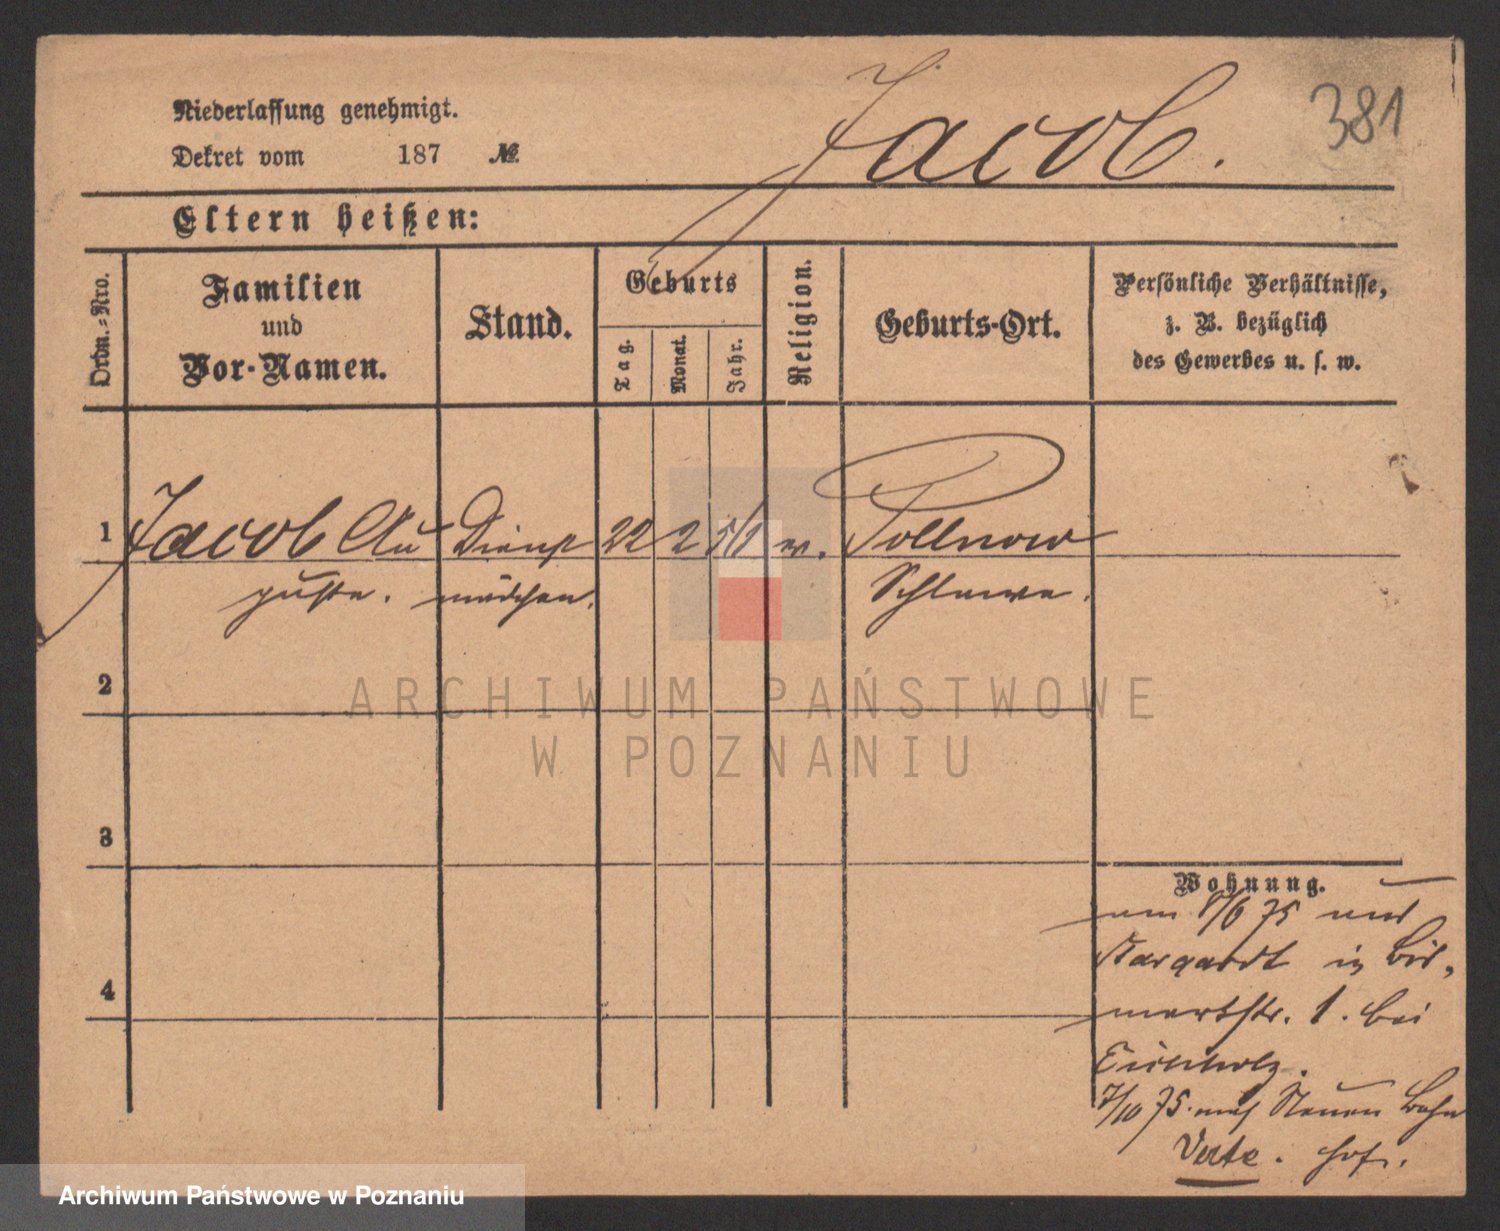 Jacob.
381
Niederlassung genehmigt.
Dekret vom 187 №
Eltern heißen:
Ordn.-Nro.
Familien
und
Vor-Namen.
Stand.
Geburts
Tag.
Monat.
Jahr.
Religion.
Geburts-Ort.
Persönliche Verhältnisse,
z. B. bezüglich
des Gewerbes u. s. w.
1 Jacob Au Dienst 22 2 51 ev. Pollnow
guste. mädchen. Schlawe.
2
3
4
Wohnung.
am 8/6 75 aus
Stargardt in Bis-
markstr. 1. bei
Eichholz.
7/10 75. nach Neuen Bahn
hof.
Verte.
ARCHIWUM PAŃSTWOWE
W POZNANIU
Archiwum Państwowe w Poznaniu